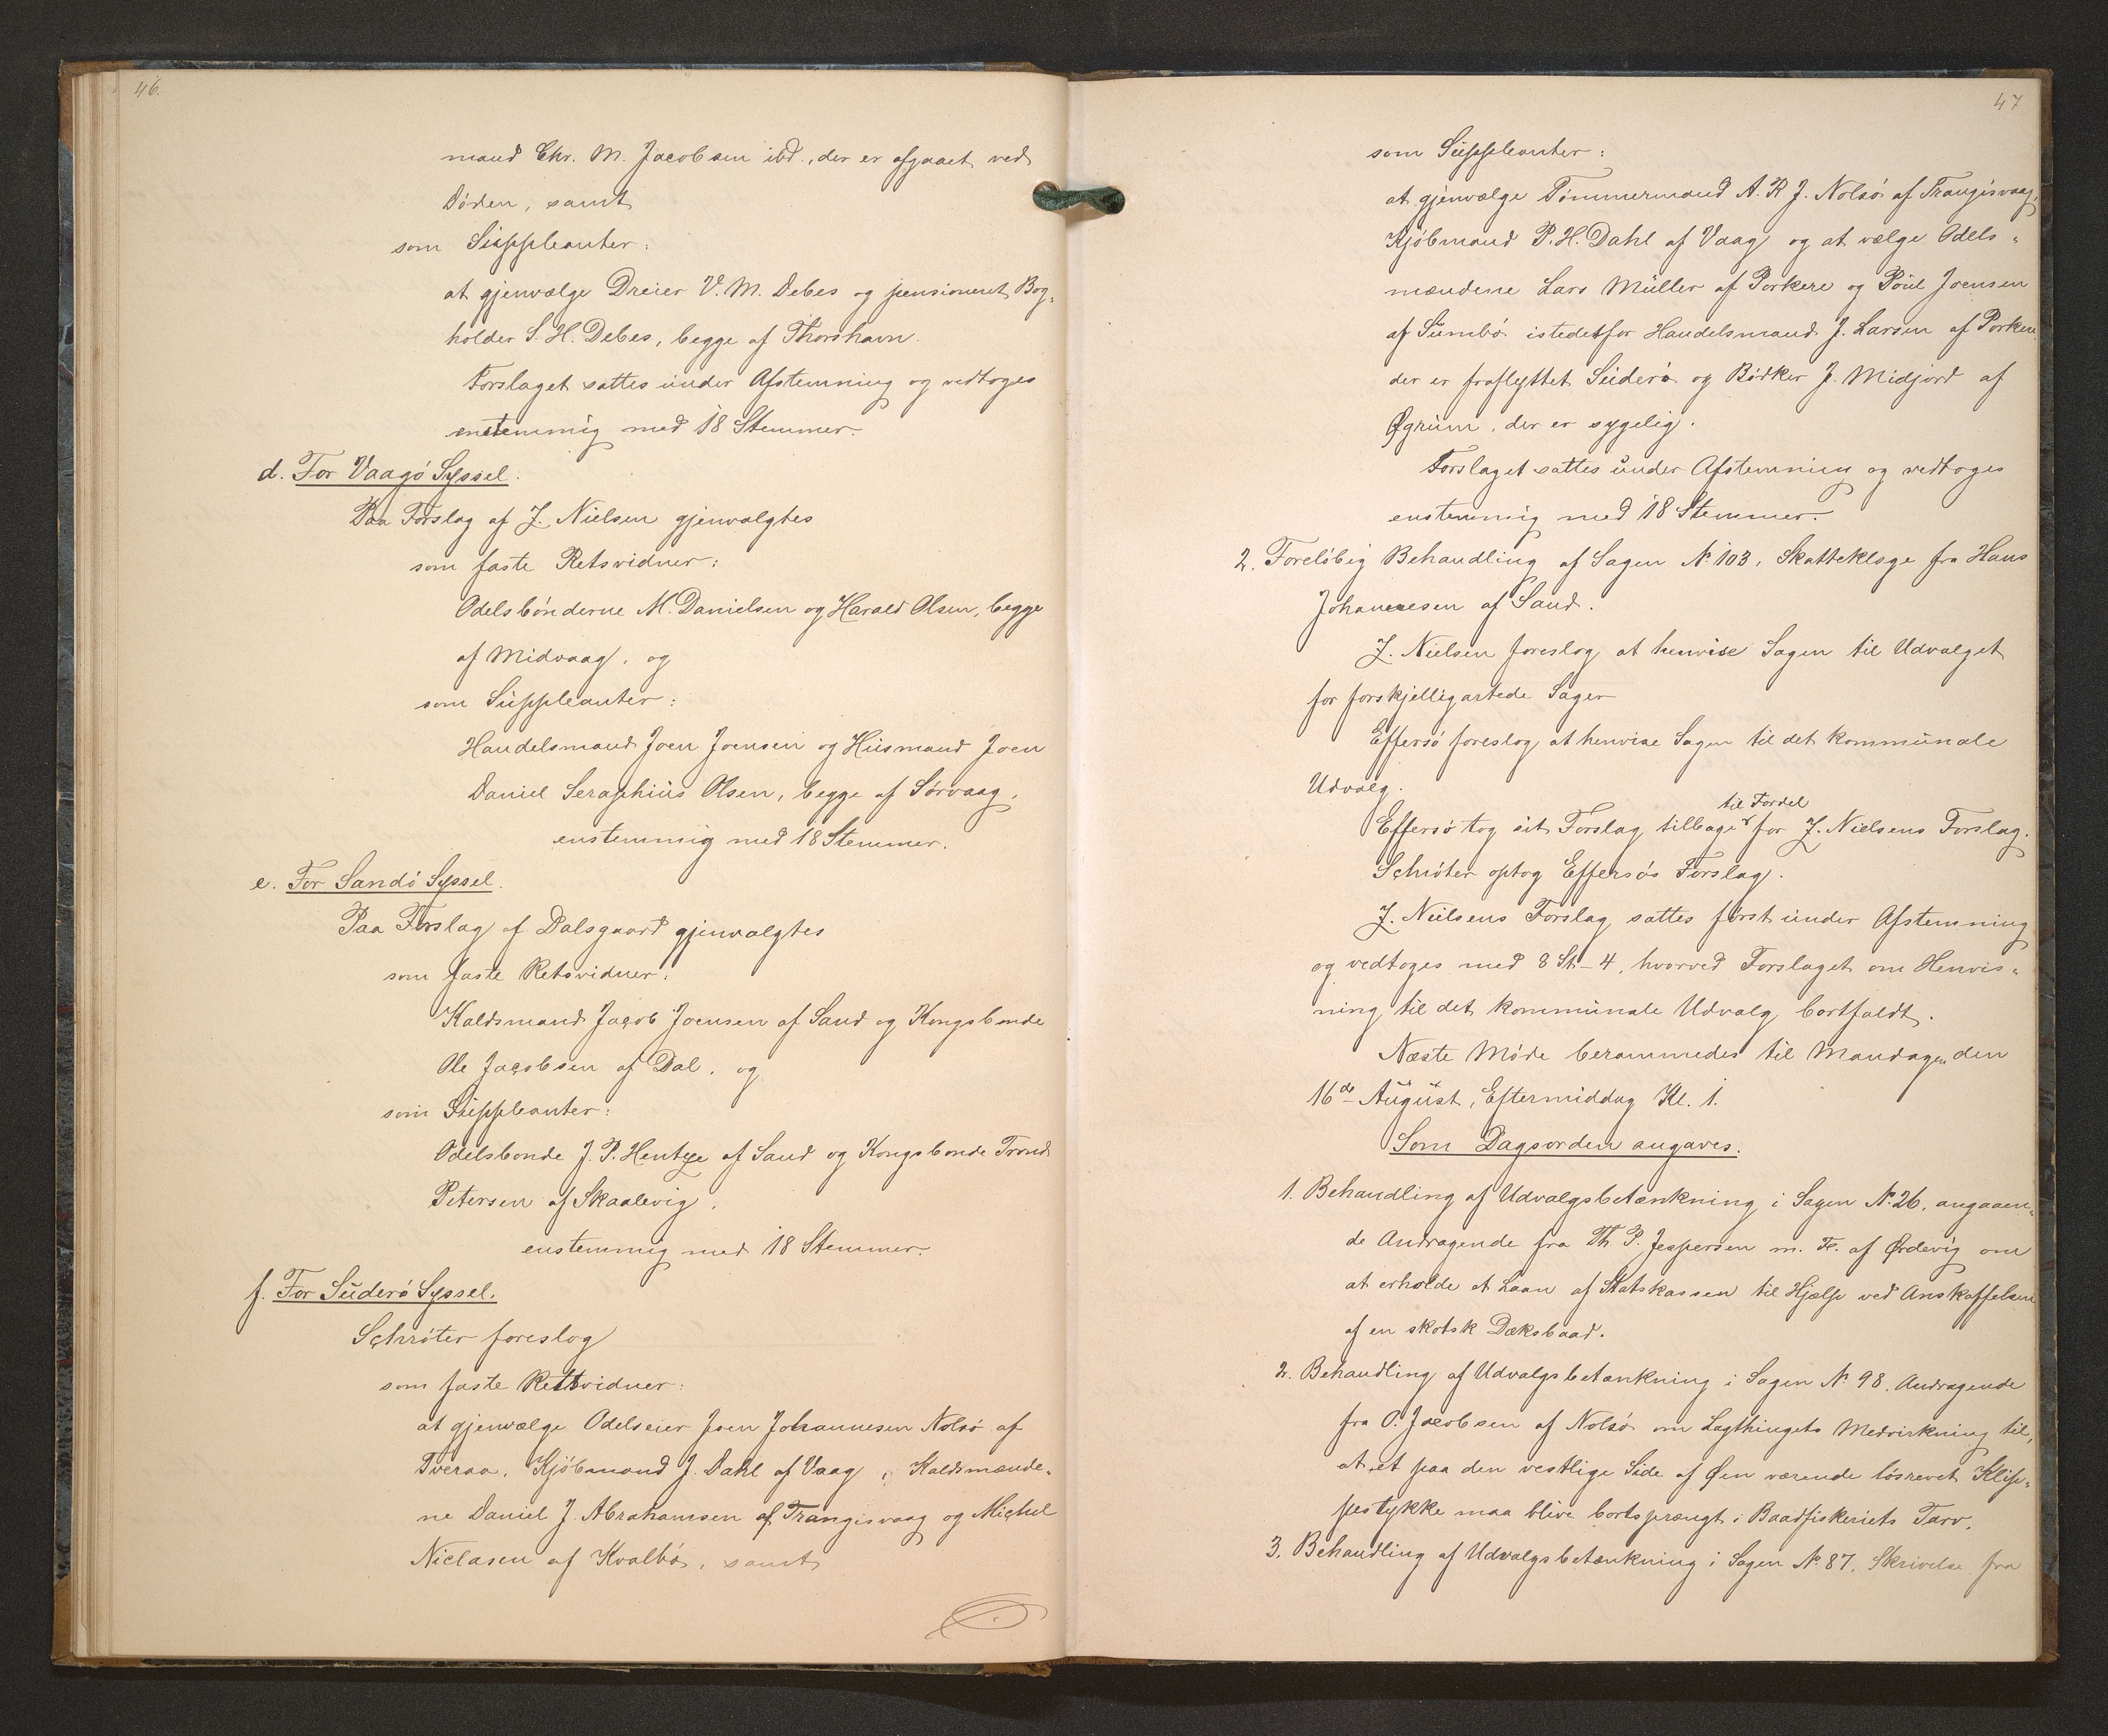 46.
mand Chr. M. Jacobsen ibd., der er afgaaet ved
Døden, samt
som Suppleanter:
at gjenvælge Dreier V. M. Debes og pensioneret Bog-
holder S. H. Debes, begge af Thorshavn.
Forslaget sattes under Afstemning og vedtoges
enstemmig med 18 Stemmer.
d. For Vaagø Syssel.
Paa Forslag af J. Nielsen gjenvalgtes
som faste Retsvidner:
Odelsbønderne M. Danielsen og Harald Olsen, begge
af Midvaag, og
som Suppleanter:
Handelsmand Joen Joensen og Husmand Joen
Daniel Seraphius Olsen, begge af Sørvaag,
enstemmig med 18 Stemmer.
e. For Sandø Syssel.
Paa Forslag af Dalsgaard gjenvalgtes
som faste Retsvidner:
Kaldsmand Jacob Joensen af Sand og Kongsbonde
Ole Jacobsen af Dal, og
som Suppleanter:
Odelsbonde J. P. Hentze af Sand og Kongsbonde Trond
Petersen af Skaalevig,
enstemmig med 18 Stemmer.
f. For Suderø Syssel.
Schrøter foreslog
som faste Retsvidner:
at gjenvælge Odelseier Joen Johannesen Nolsø af
Tveraa, Kjøbmand J. Dahl af Vaag, Kaldsmænde-
ne Daniel J. Abrahamsen af Trangisvaag og Michel
Niclasen af Kvalbø, samt
47
som Suppleanter:
at gjenvælge Tømmermand A. R. J. Nolsø af Trangisvaag,
Kjøbmand P. H. Dahl af Vaag og at vælge Odels-
mændene Lars Müller af Porkere og Poul Joensen
af Sumbø istedetfor Handelsmand J. Larsen af Porkere
der er fraflyttet Suderø og Bødker J. Midjord af
Øgrum, der er sygelig.
Forslaget sattes under Afstemning og vedtoges
enstemmig med 18 Stemmer.
2. Foreløbig Behandling af Sagen No 103, Skatteklage fra Hans
Johannesen af Sand.
J. Nielsen foreslog at henvise Sagen til Udvalget
for forskjelligartede Sager
Effersø foreslog at henvise Sagen til det kommunale
Udvalg.
til Fordel
Effersø tog sit Forslag tilbage for J. Nielsens Forslag.
Schrøter optog Effersøs Forslag.
J. Nielsens Forslag sattes først under Afstemning
og vedtoges med 8 St - 4, hvorved Forslaget om Henvis-
ning til det kommunale Udvalg bortfaldt.
Næste Møde berammedes til Mandagen den
16de August, Eftermiddag Kl. 1.
Som Dagsorden angaves.
1. Behandling af Udvalgsbetænkning i Sagen No 26, angaaen-
de Andragende fra Th P. Jespersen m. Fl. af Ørdevig om
at erholde et Laan af Statskassen til Hjælp ved Anskaffelsen
af en skotsk Dæksbaad.
2. Behandling af Udvalgsbetænkning i Sagen No 98, Andragende
fra O. Jacobsen af Nolsø om Lagthingets Medvirkning til,
at et paa den vestlige Side af Øen værende løsrevet Klip-
pestykke maa blive bortsprængt i Baadfiskeriets Tarv.
3. Behandling af Udvalgsbetænkning i Sagen No 87, Skrivelse fra